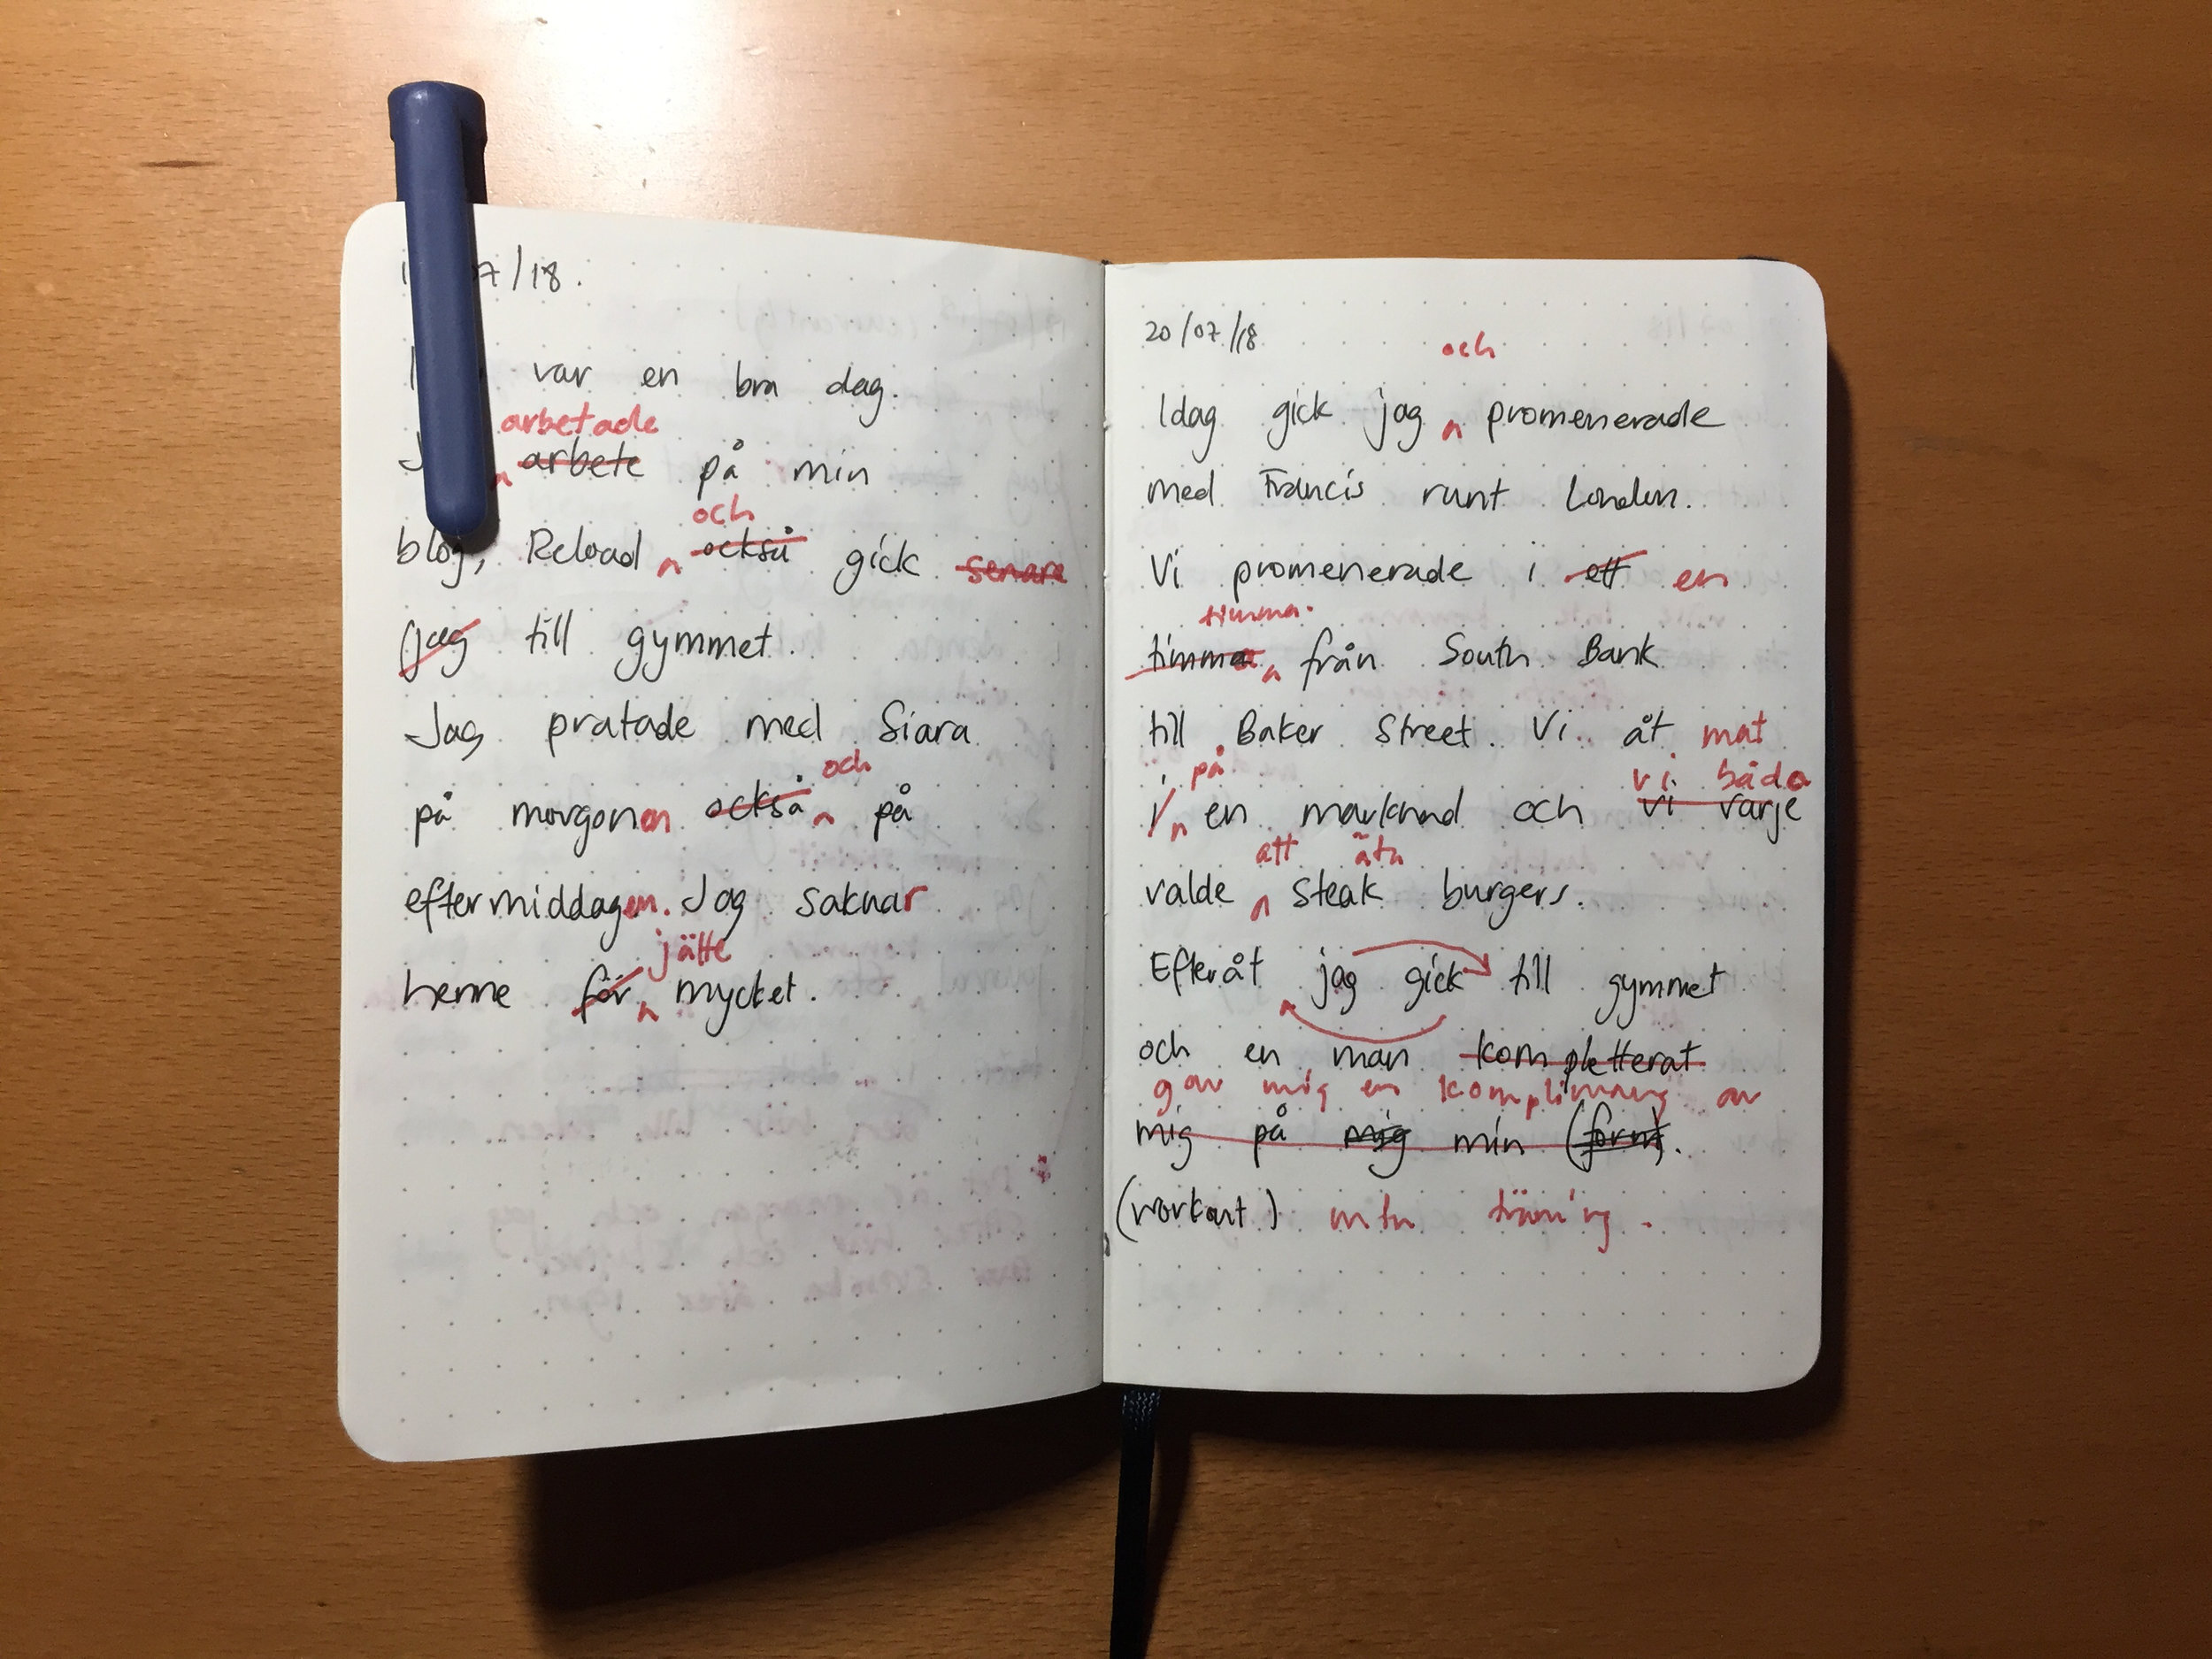 7/18.
var en bra dag.
arbetade
arbete på min
och
blog, Reload också gick senare
jag till gymmet.
Jag pratade med Siara
och
på morgonen också på
eftermiddagen. Jag saknar
jätte
henne för mycket.
20/07/18
och
Idag gick jag promenerade
med Francis runt London.
Vi promenerade i ett en
timma.
timma från South Bank
till Baker Street. Vi åt mat
på vi båda
i en marknad och vi varje
att äta
valde steak burgers.
Efteråt jag gick till gymmet
och en man kompletterat
gav mig en komplimang av
mig på mig min (form).
(workout) min träning.